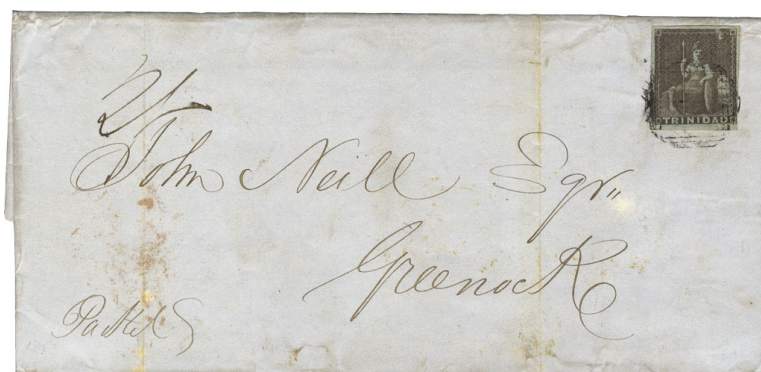 TRINIDAD
2/-
John Neill Esqr
Greenock
Packet